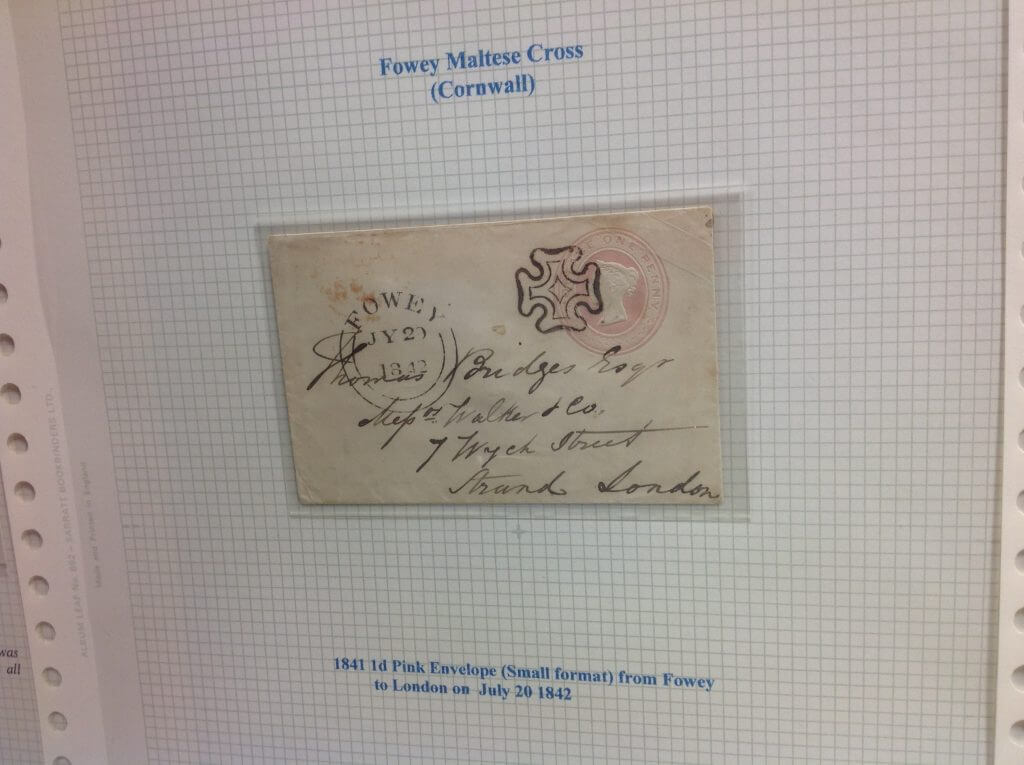 Fowey Maltese Cross
(Cornwall)
ONE PENNY
FOWEY
JY 20
1842
Thomas Bridges Esqr
Messrs Walker & Co.
7 Wych Street
Strand London
1841 1d Pink Envelope (Small format) from Fowey
to London on July 20 1842
ALBUM LEAF No. 892 - BARRATT BOOKBINDERS LTD.
Made and Printed in England
was
all